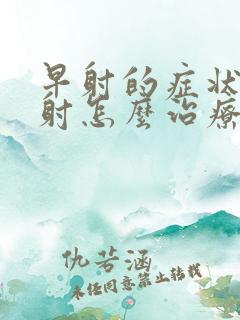 早射的症状
射怎麽治療
仇若涵
未经同意禁止转载